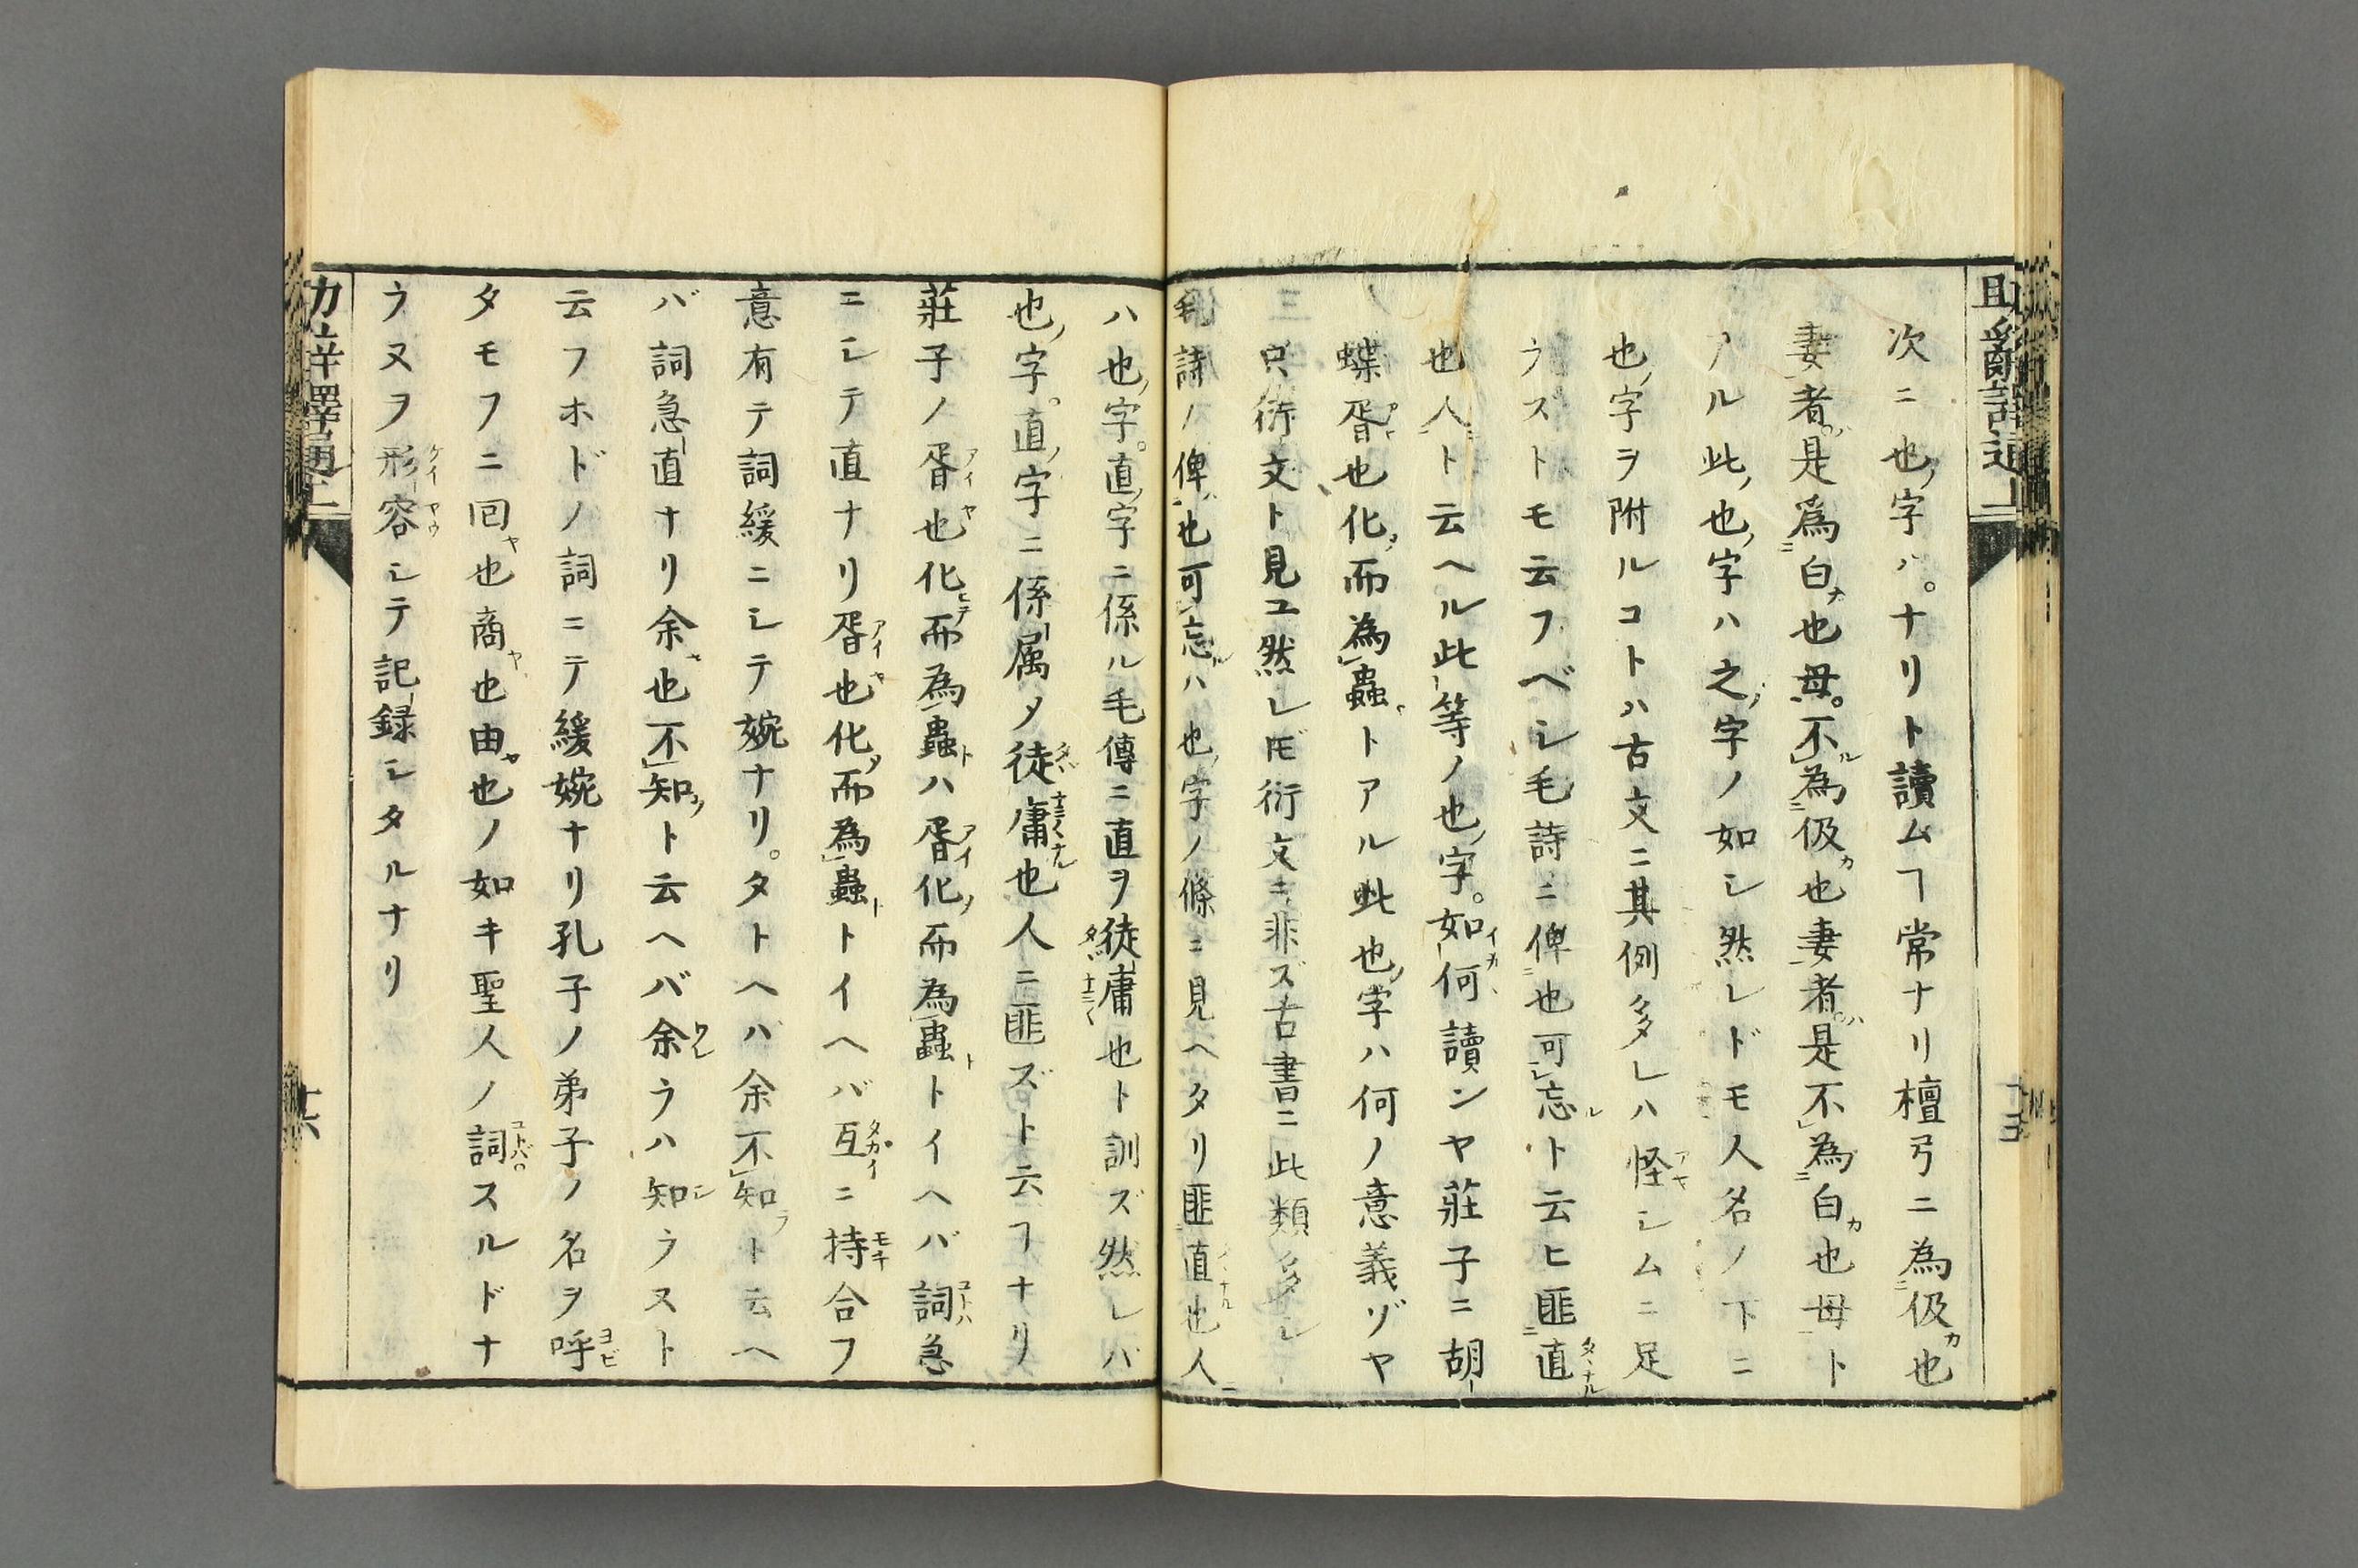 次ニ也ノ字ハ。ナリト讀ムヿ常ナリ檀弓ニ為伋也
妻者。是為白也母。不為伋也妻者。是不為白也母ト
アル此ノ也ノ字ハ之ノ字ノ如シ然レドモ人名ノ下ニ
也ノ字ヲ附ルコトハ古文ニ其例多レハ怪シムニ足
ラズトモ云フベシ毛詩ニ俾也可忘ト云ヒ匪直
也人ト云ヘル此等ノ也ノ字。如何讀ンヤ莊子ニ胡
蝶胥也化而為蟲トアル此也ノ字ハ何ノ意義ゾヤ
只衍文ト見ユ然レ𪜈衍文ニ非ズ古書ニ此類多シ
毛詩ノ俾也可忘ハ也ノ字ノ條ニ見ヘタリ匪直也人
ハ也ノ字。直ノ字ニ係ル毛傳ニ直ヲ徒庸也ト訓ズ然レバ
也ノ字。直ノ字ニ係属メ徒庸也人ニ匪ズト云フナリ
莊子ノ胥也化而為蟲ハ胥化而為蟲トイヘバ詞急
ニシテ直ナリ胥也化而為蟲トイヘバ互ニ持合フ
意有テ詞緩ニシテ婉ナリ。タトヘハ余不知ト云ヘ
バ詞急直ナリ余也不知ト云ヘバ余ラハ知ラヌト
云フホドノ詞ニテ緩婉ナリ孔子ノ弟子ノ名ヲ呼
タモフニ回也商也由也ノ如キ聖人ノ詞スルドナ
ラヌヲ形容シテ記録シタルナリ
十六